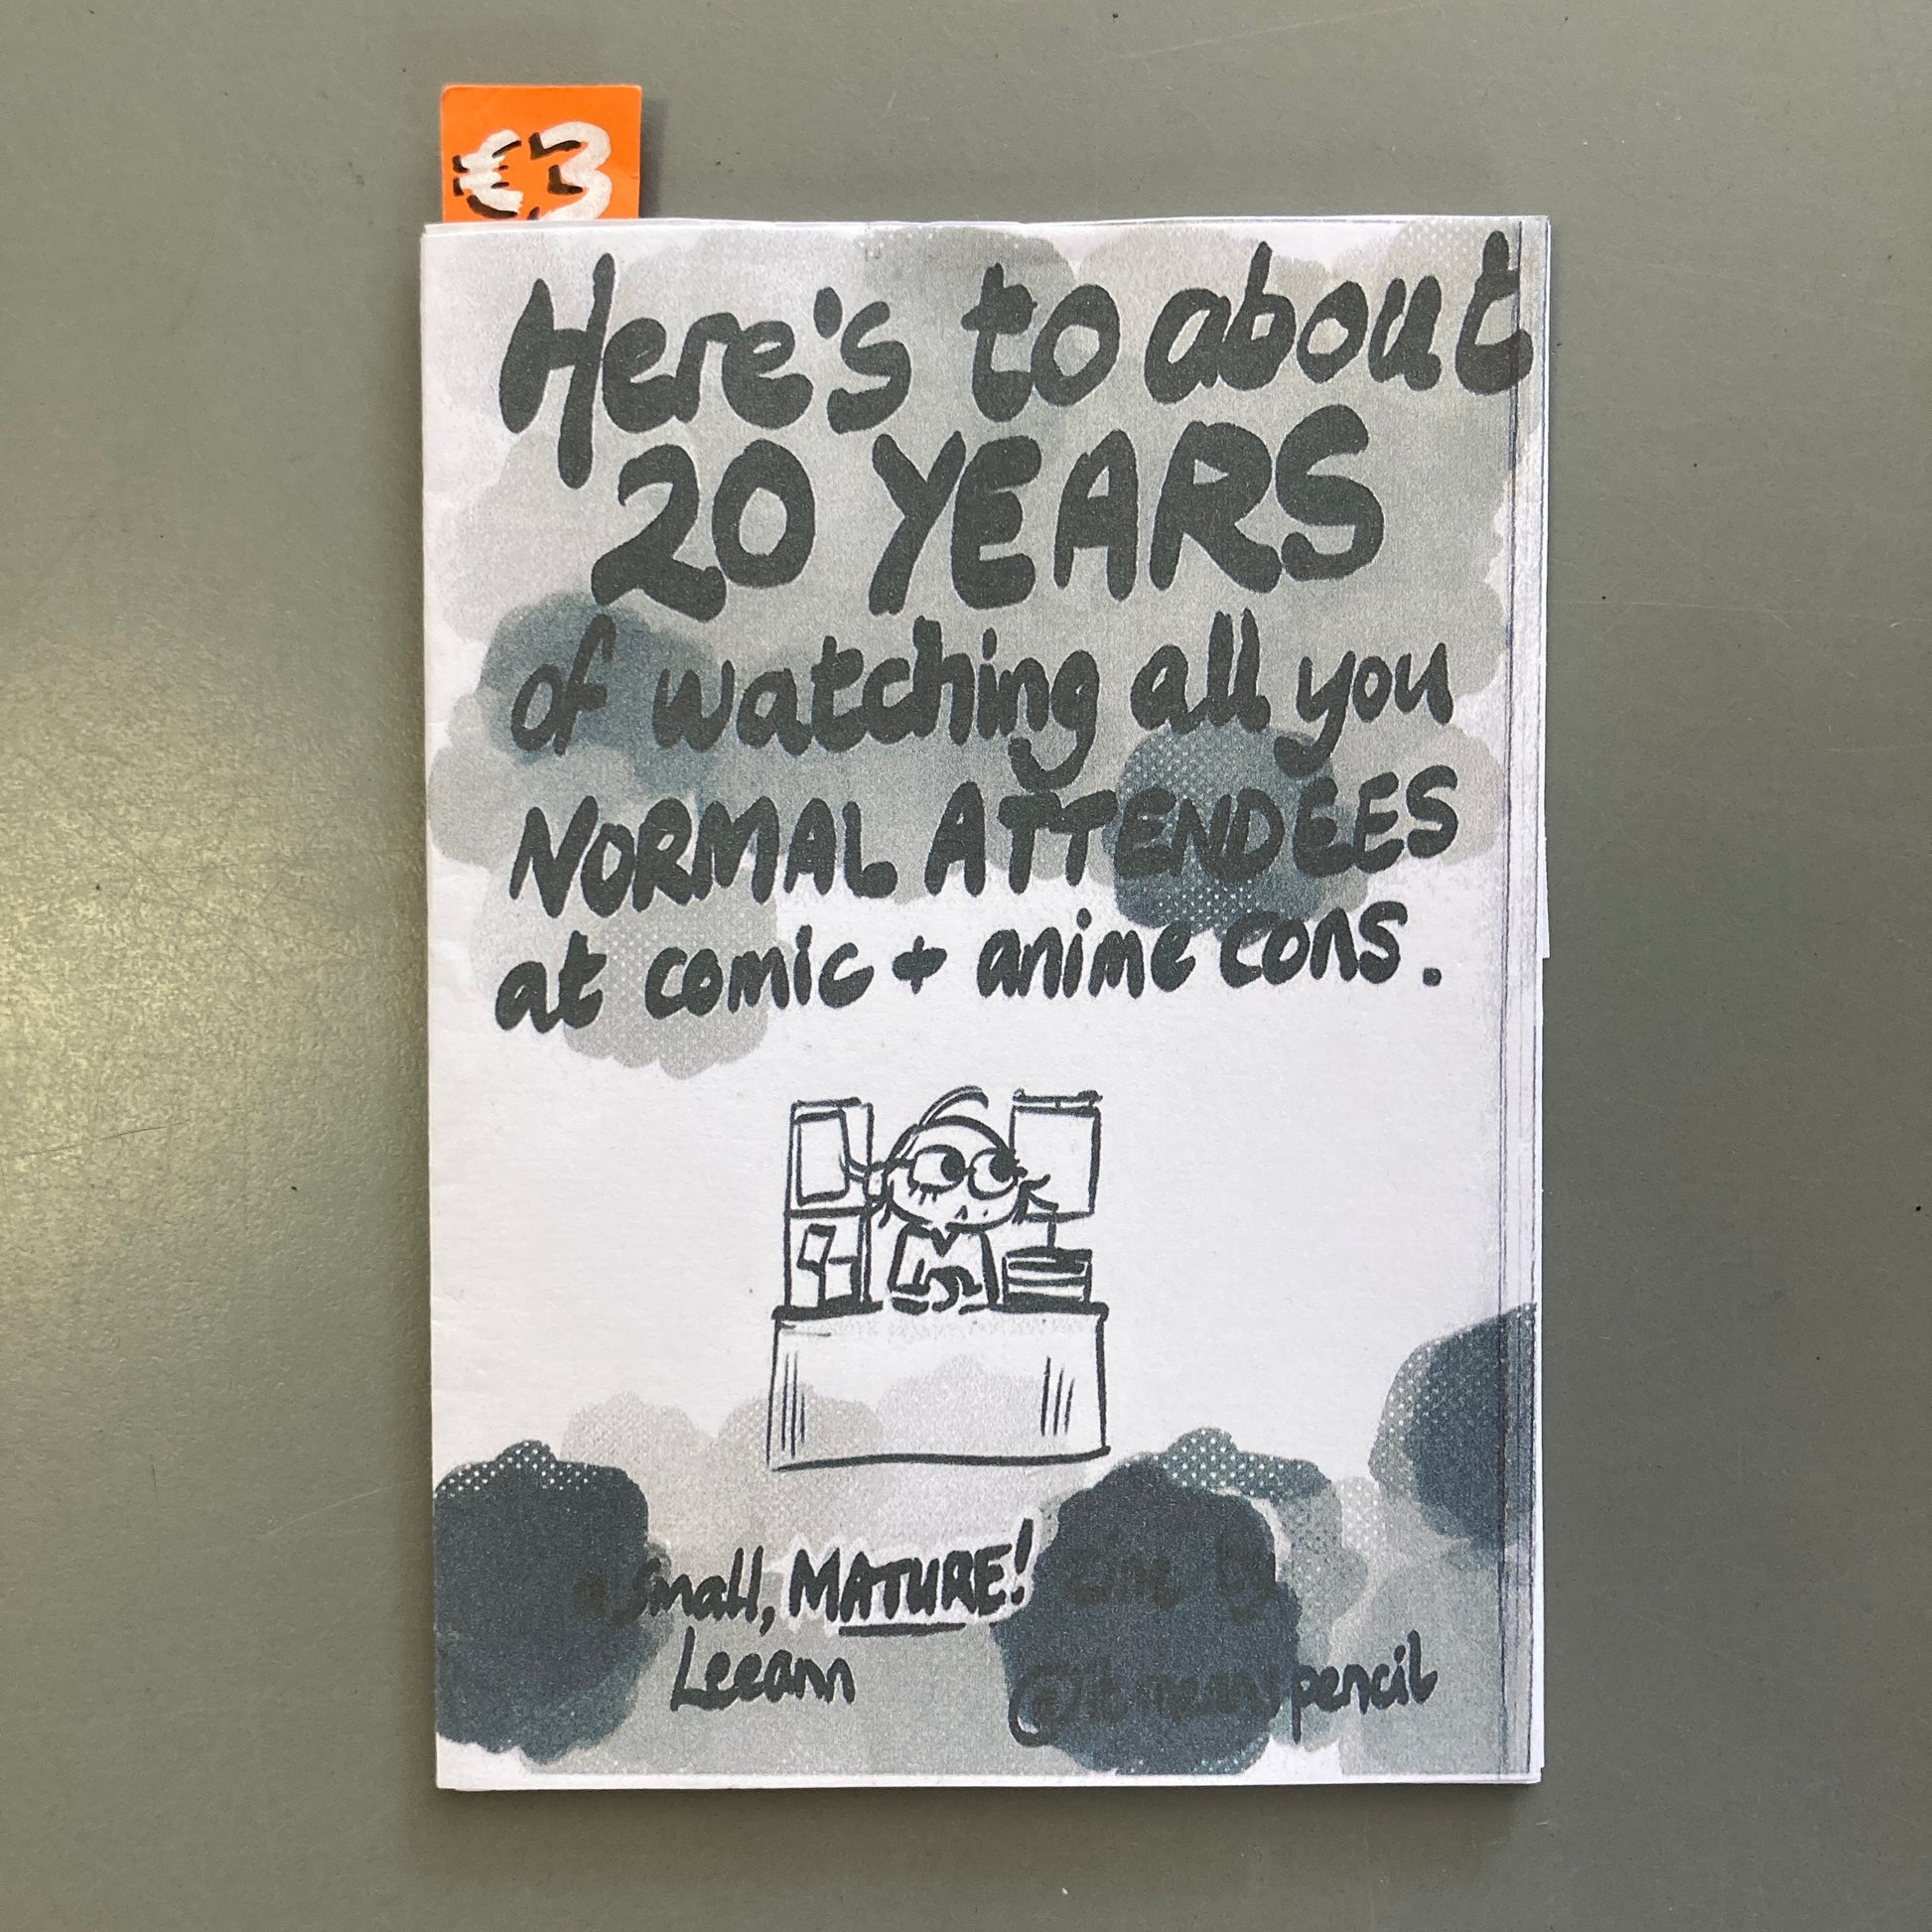 €3
Here's to about
20 YEARS
of watching all you
NORMAL ATTENDEES
at comic + anime cons.
a small, MATURE! zine by
Leeann @itmeanspencil